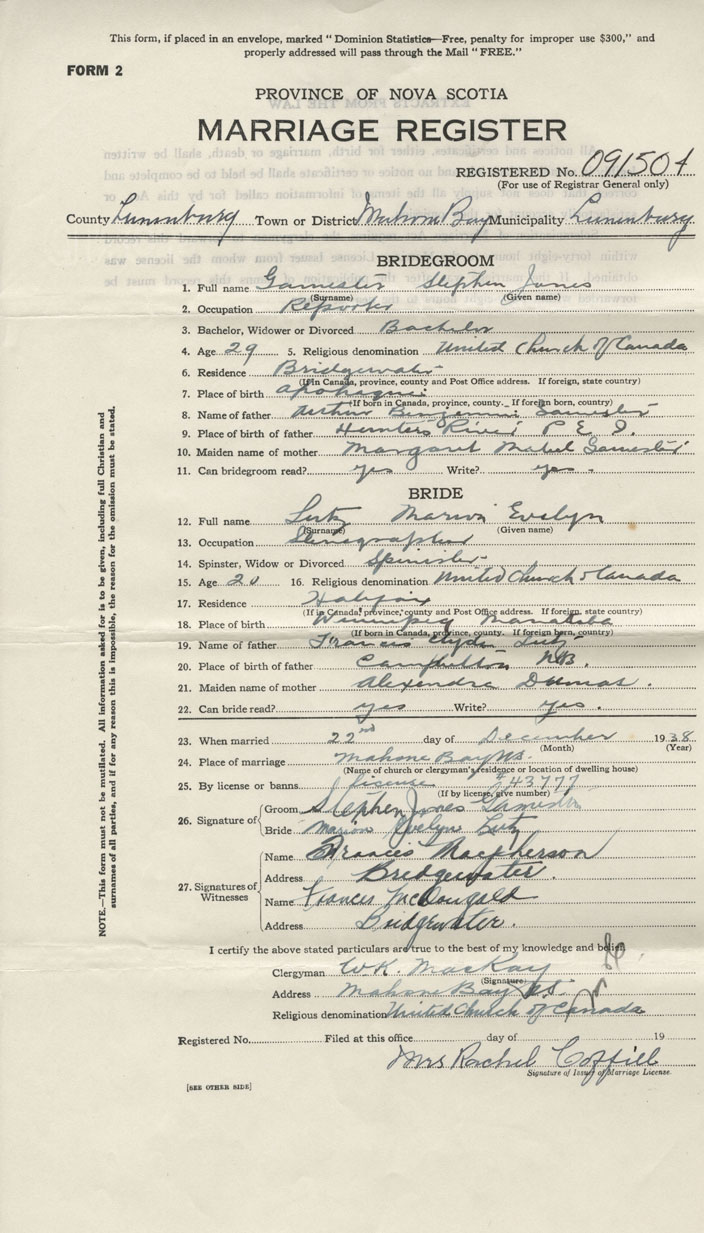 This form, if placed in an envelope, marked " Dominion Statistics—Free, penalty for improper use $300," and
properly addressed will pass through the Mail "FREE."
FORM 2
PROVINCE OF NOVA SCOTIA
MARRIAGE REGISTER
REGISTERED No. 091504
(For use of Registrar General only)
County Lunenburg Town or District Mahone Bay Municipality Lunenburg
BRIDEGROOM
1. Full name Gamester Stephen Jones
(Surname) (Given name)
2. Occupation Reporter
3. Bachelor, Widower or Divorced Bachelor
4. Age 29 5. Religious denomination United Church of Canada
6. Residence Bridgewater
(If in Canada, province, county and Post Office address. If foreign, state country)
7. Place of birth Apohaqui
(If born in Canada, province, county. If foreign born, country)
8. Name of father Arthur Benjamin Gamester
9. Place of birth of father Hunter River P E I.
10. Maiden name of mother Margaret Mabel Gamester
11. Can bridegroom read? yes Write? yes
BRIDE
12. Full name Lutz Marion Evelyn
(Surname) (Given name)
13. Occupation Stenographer
14. Spinster, Widow or Divorced Spinister
15. Age 20 16. Religious denomination United Church of Canada
17. Residence Halifax
(If in Canada, province, county and Post Office address. If foreign, state country)
18. Place of birth Winnipeg Manatoba
(If born in Canada, province, county. If foreign born, country)
19. Name of father Francis Clyde Lutz
20. Place of birth of father Campbellton N.B.
21. Maiden name of mother Alexendra Dumas.
22. Can bride read? yes Write? yes.
23. When married 22nd day of December 1938
(Month) (Year)
24. Place of marriage Mahone Bay NS.
(Name of church or clergyman's residence or location of dwelling house)
25. By license or banns license 243777
(If by license, give number)
26. Signature of Groom Stephen Jones Gamester
Bride Marion Evelyn Lutz
27. Signatures of Witnesses
Name Francis Macpherson
Address Bridgewater.
Name Frances McDougald
Address Bridgewater.
I certify the above stated particulars are true to the best of my knowledge and belief.
Clergyman W.K. MacKay
(Signature)
Address Mahone Bay NS.
Religious denomination United Church of Canada
Registered No. Filed at this office day of 19
Mrs Rachel Coffill
Signature of Issuer of Marriage License.
[SEE OTHER SIDE]
NOTE.—This form must not be mutilated. All information asked for is to be given, including full Christian and
surnames of all parties, and if for any reason this is impossible, the reason for the omission must be stated.